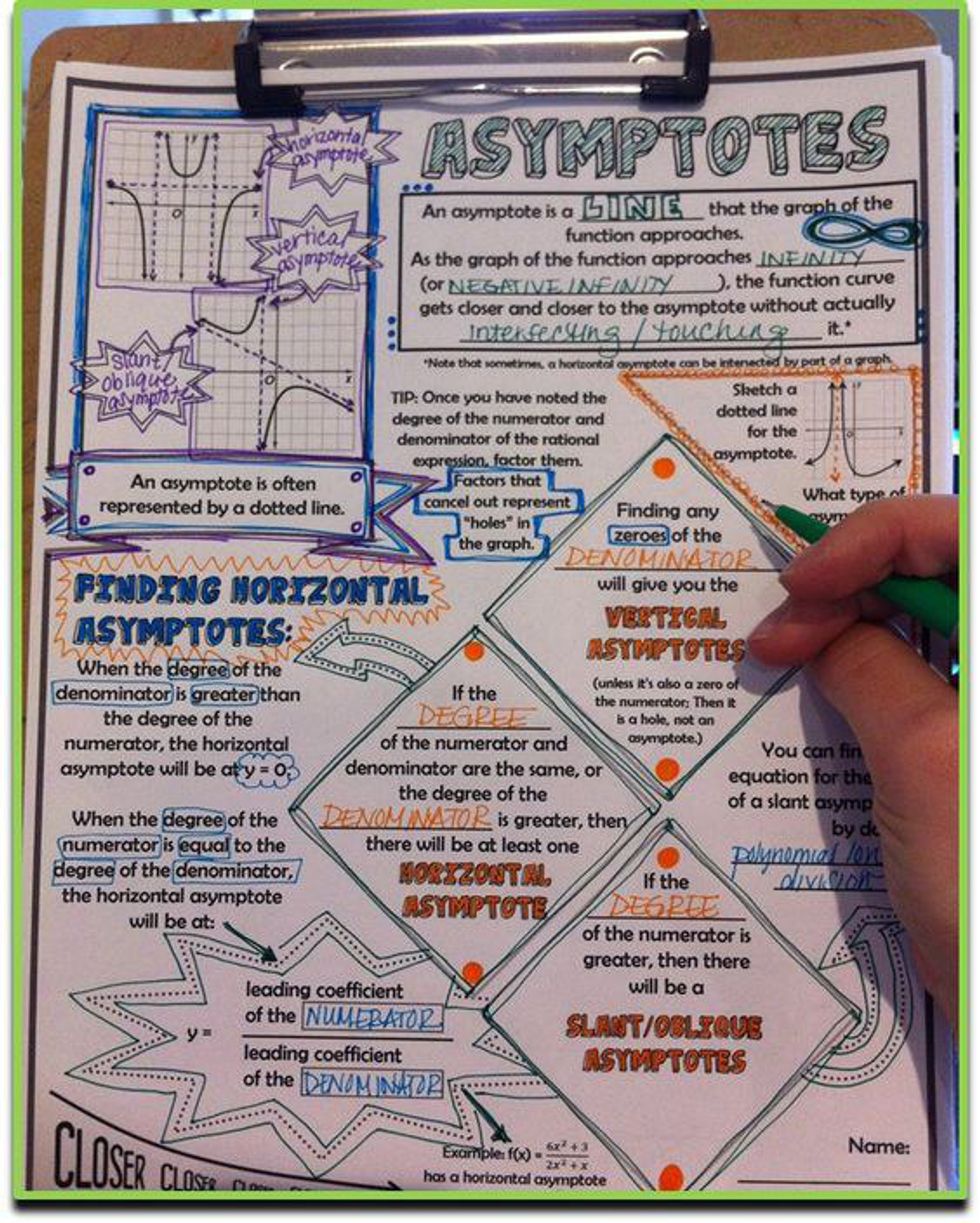 ASYMPTOTES
horizontal
asymptote
vertical
asymptote
slant/
oblique
asymptote
y
O
x
O
x
An asymptote is often
represented by a dotted line.
An asymptote is a LINE that the graph of the
function approaches.
As the graph of the function approaches INFINITY
(or NEGATIVE INFINITY ), the function curve
gets closer and closer to the asymptote without actually
intersecting / touching it.*
*Note that sometimes, a horizontal asymptote can be intersected by part of a graph.
TIP: Once you have noted the
degree of the numerator and
denominator of the rational
expression, factor them.
Factors that
cancel out represent
"holes" in
the graph.
Sketch a
dotted line
for the
asymptote.
What type of
Finding any
zeroes of the
DENOMINATOR
will give you the
VERTICAL
ASYMPTOTES
(unless it's also a zero of
the numerator; Then it
is a hole, not an
asymptote.)
FINDING HORIZONTAL
ASYMPTOTES:
When the degree of the
denominator is greater than
the degree of the
numerator, the horizontal
asymptote will be at y = 0.
When the degree of the
numerator is equal to the
degree of the denominator,
the horizontal asymptote
will be at:
y =
leading coefficient
of the NUMERATOR
leading coefficient
of the DENOMINATOR
If the
DEGREE
of the numerator and
denominator are the same, or
the degree of the
DENOMINATOR is greater, then
there will be at least one
HORIZONTAL
ASYMPTOTE
You can fin
equation for the
of a slant asymp
by do
polynomial lon
division
If the
DEGREE
of the numerator is
greater, then there
will be a
SLANT/OBLIQUE
ASYMPTOTES
Example: f(x) = 6x² + 3
2x² + x
has a horizontal asymptote
Name:
CLOSER CLOSER CLOSER